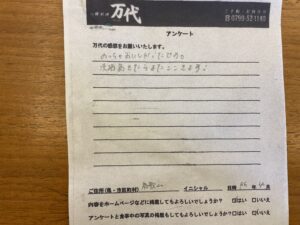 万代
ご予約・お問合せ
☎0799-52-1180
アンケート
万代の感想をお願いいたします。
めっちゃおいしかったです。
淡路島きたらまたここきます。
ご住所(県・市区町村) 和歌山 イニシャル 日時 R6年 4月
内容をホームページなどに掲載してもよろしいでしょうか? □はい □いいえ
アンケートと食事中の写真の掲載もしてよろしいでしょうか? □はい □いいえ